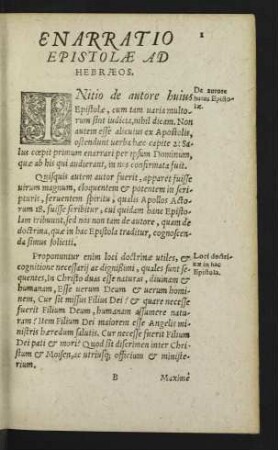 ENARRATIO
EPISTOLÆ AD
HEBRÆOS.
1
INitio de autore huius
Epistolæ, cum tam uaria multo-
rum sint iudicia, nihil dicam. Non
autem esse alicuius ex Apostolis,
ostendunt uerba hæc capite 2: Sa
lus cœpit primum enarrari per ipsum Dominum,
quæ ab his qui audierant, in nos confirmata fuit.
De autore
huius Episto-
læ.
Quisquis autem autor fuerit, apparet fuisse
uirum magnum, eloquentem & potentem in scri-
pturis, feruentem spiritu, qualis Apollos Acto-
rum 18. fuisse scribitur, cui quidam hanc Episto-
lam tribuunt, sed nos non tam de autore, quam de
doctrina, quæ in hac Epistola traditur, cognoscen-
da simus soliciti.
Proponuntur enim loci doctrinæ utiles, &
cognitione necessarij ac dignissimi, quales sunt se-
quentes, in Christo duas esse naturas, diuinam &
humanam, Esse uerum Deum & uerum homi-
nem. Cur sit missus Filius Dei? & quare necesse
fuerit Filium Deum, humanam assumere natu-
ram? Item Filium Dei maiorem esse Angelis mi-
nistris hæredum salutis. Cur necesse fuerit Filium
Dei pati & mori? Quod sit discrimen inter Chri-
stum & Moisen, ac utriusque officium & ministe-
rium.
Loci doctri-
næ in hac
Epistola.
B
Maximè